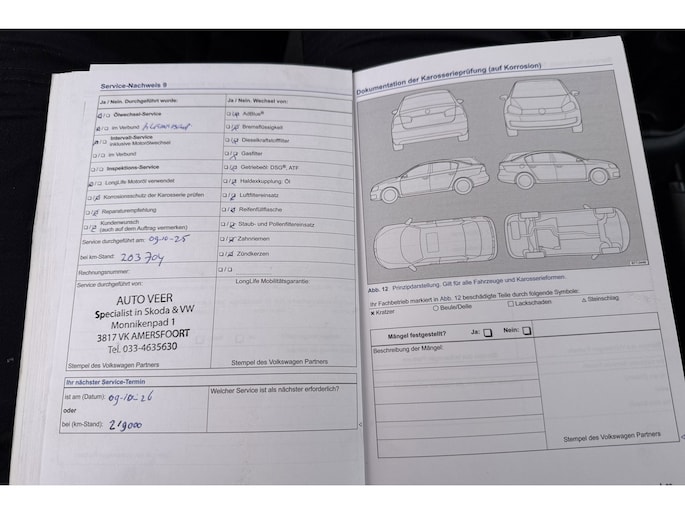 Service-Nachweis 9
Ja / Nein. Durchgeführt wurde:
Ölwechsel-Service
im Verbund
Intervall-Service
inklusive Motorölwechsel
im Verbund
Inspektions-Service
LongLife Motoröl verwendet
Korrosionsschutz der Karosserie prüfen
Reparaturempfehlung
Kundenwunsch
(auch auf dem Auftrag vermerken)
Service durchgeführt am: 09-10-25
bei km-Stand: 203704
Rechnungsnummer:
Service durchgeführt von:
AUTO VEER
Specialist in Skoda & VW
Monnikenpad 1
3817 VK AMERSFOORT
Tel. 033-4635630
Stempel des Volkswagen Partners
Ja / Nein. Wechsel von:
AdBlue®
Bremsflüssigkeit
Dieselkraftstofffilter
Gasfilter
Getriebeöl: DSG®, ATF
Haldexkupplung: Öl
Luftfiltereinsatz
Reifenfüllflasche
Staub- und Pollenfiltereinsatz
Zahnriemen
Zündkerzen
LongLife Mobilitätsgarantie:
Stempel des Volkswagen Partners
Ihr nächster Service-Termin
ist am (Datum): 09-10-26
oder
bei (km-Stand): 219000
Welcher Service ist als nächster erforderlich?
Dokumentation der Karosserieprüfung (auf Korrosion)
Abb. 12 Prinzipdarstellung. Gilt für alle Fahrzeuge und Karosserieformen.
Ihr Fachbetrieb markiert in Abb. 12 beschädigte Teile durch folgende Symbole:
× Kratzer ○ Beule/Delle □ Lackschaden △ Steinschlag
Mängel festgestellt? Ja: Nein:
Beschreibung der Mängel:
Stempel des Volkswagen Partners